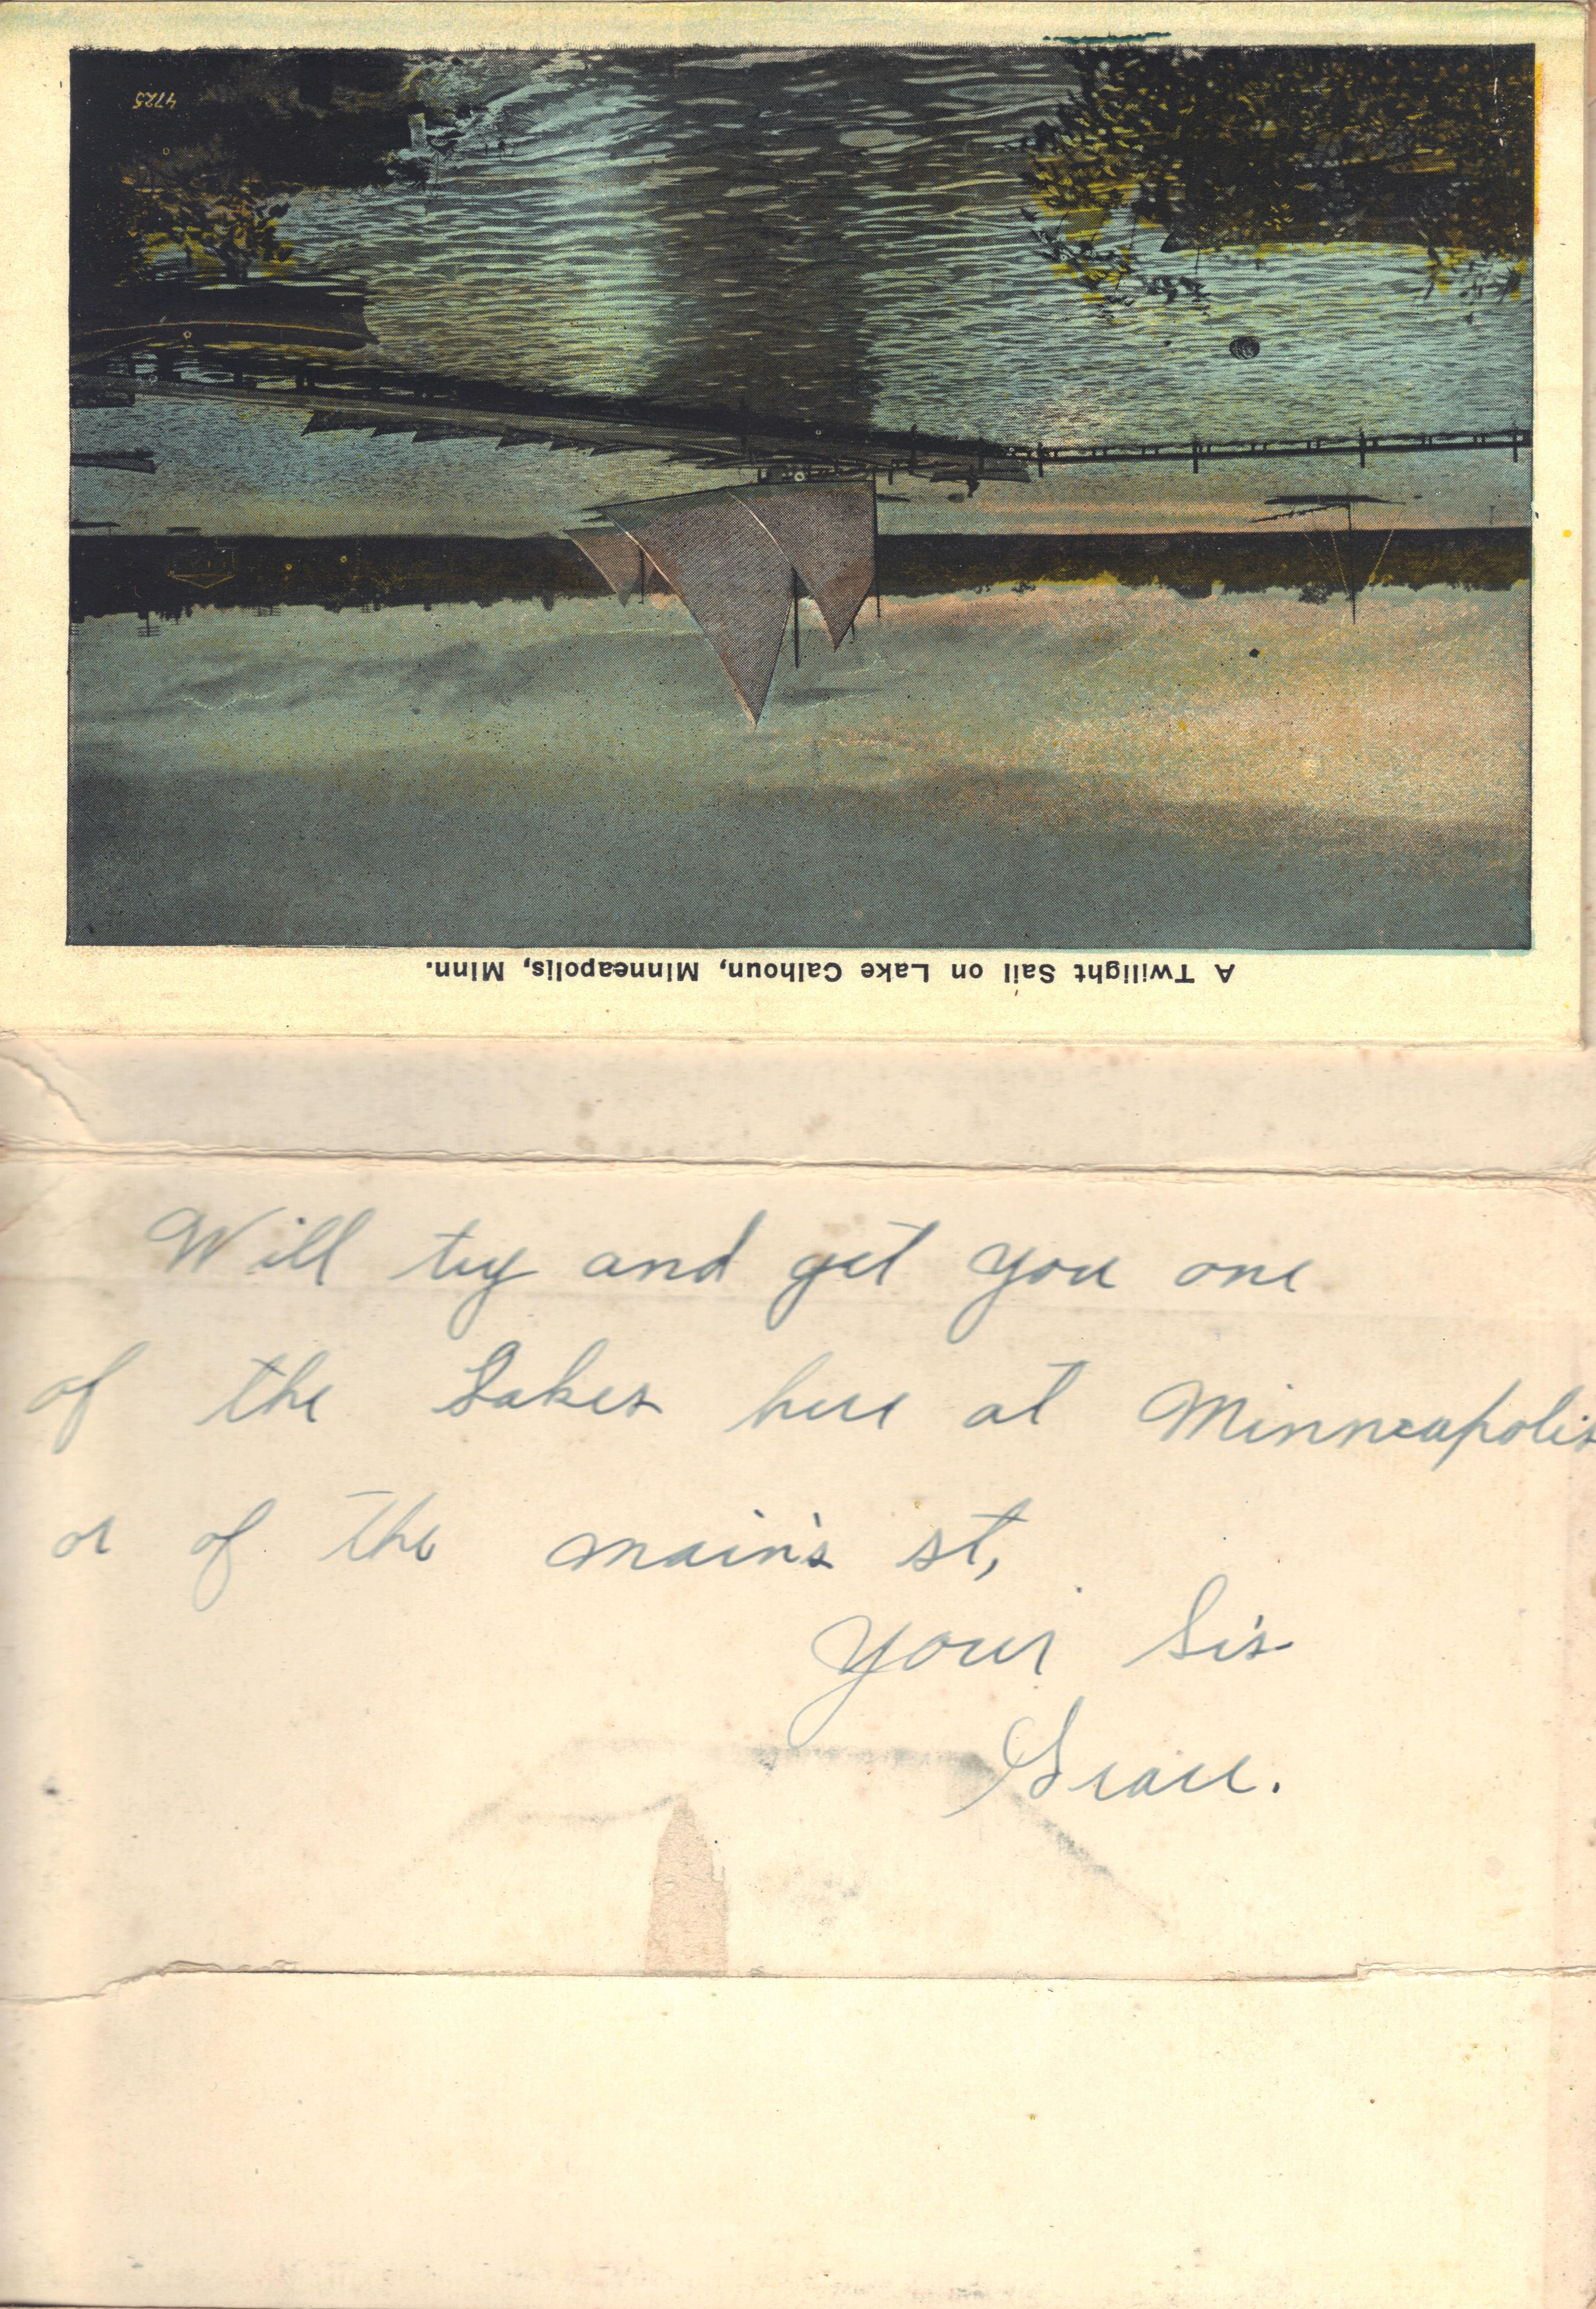 4725
A Twilight Sail on Lake Calhoun, Minneapolis, Minn.
Will try and get you one
of the Lakes here at Minneapolis
or of the main's st,
Your Sis
Grace.